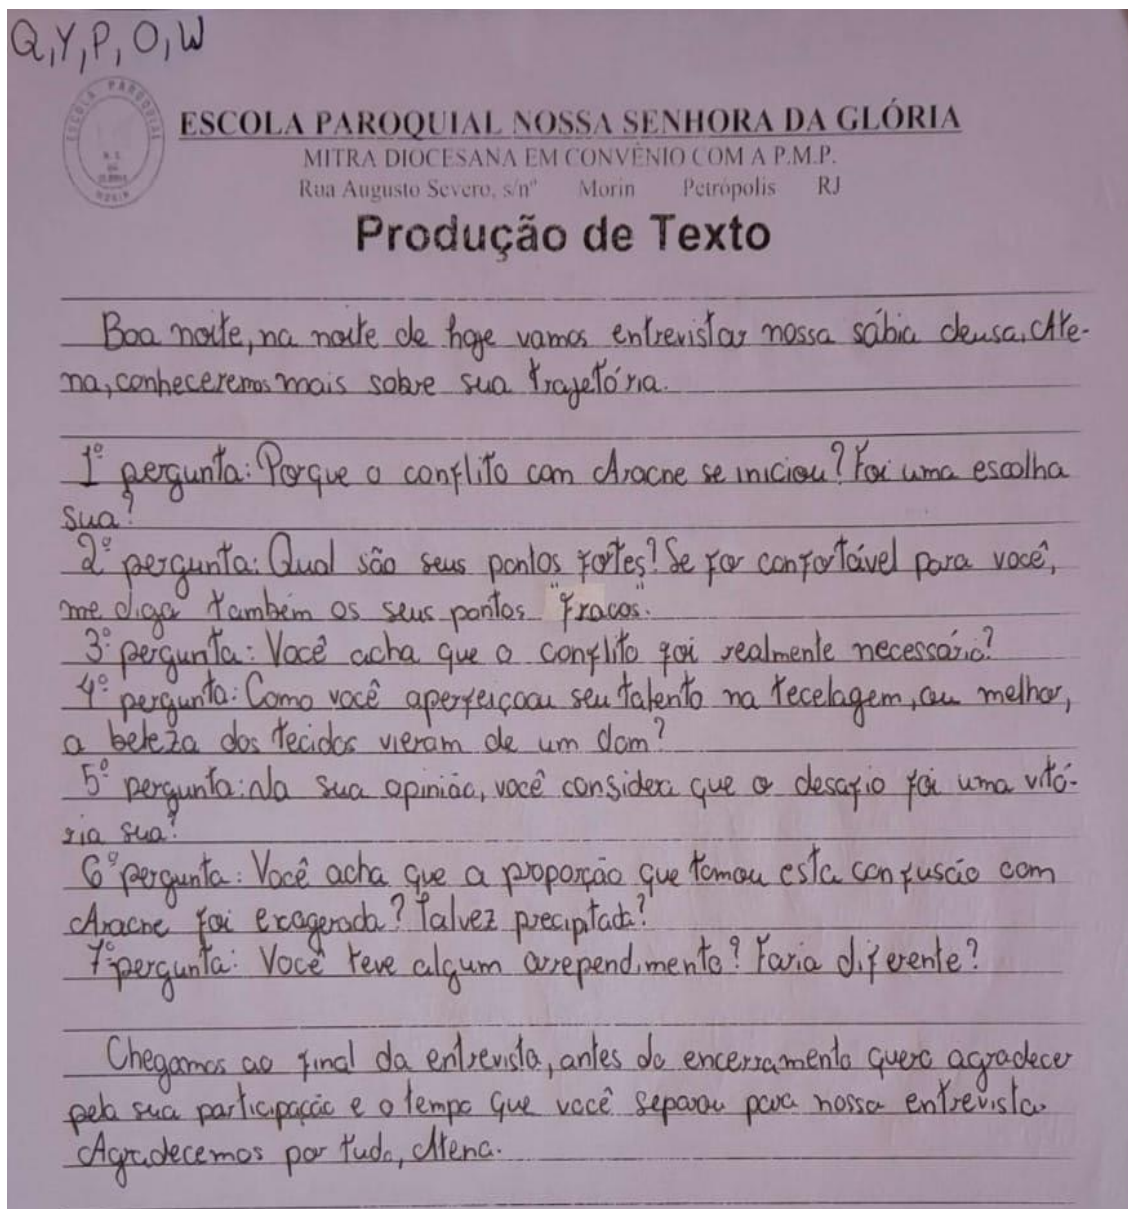 Q, Y, P, O, W
ESCOLA PAROQUIAL
N. S.
DA
GLÓRIA
MORIN
ESCOLA PAROQUIAL NOSSA SENHORA DA GLÓRIA
MITRA DIOCESANA EM CONVÊNIO COM A P.M.P.
Rua Augusto Severo, s/nº Morin Petrópolis RJ
Produção de Texto
Boa noite, na noite de hoje vamos entrevistar nossa sábia deusa, Ate-
na, conheceremos mais sobre sua trajetória.
1º pergunta: Porque o conflito com Aracne se iniciou? Foi uma escolha
sua?
2º pergunta: Qual são seus pontos fortes? Se for confortável para você,
me diga também os seus pontos "fracos".
3º pergunta: Você acha que o conflito foi realmente necessário?
4º pergunta: Como você aperfeiçoou seu talento na tecelagem, ou melhor,
a beleza dos tecidos vieram de um dom?
5º pergunta: Na sua opinião, você considera que o desafio foi uma vitó-
ria sua?
6º pergunta: Você acha que a proporção que tomou esta confusão com
Aracne foi exagerada? Talvez precipitada?
7º pergunta: Você teve algum arrependimento? Faria diferente?
Chegamos ao final da entrevista, antes do encerramento quero agradecer
pela sua participação e o tempo que você separou para nossa entrevista.
Agradecemos por tudo, Atena.